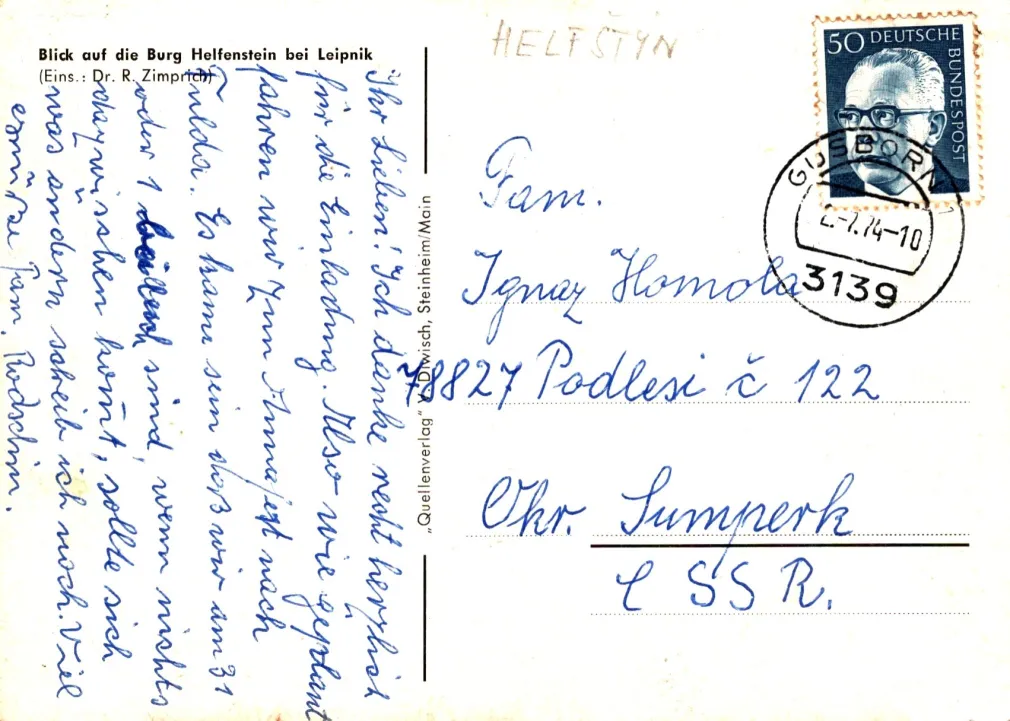 Blick auf die Burg Helfenstein bei Leipnik
(Eins.: Dr. R. Zimprich)
Ihr Lieben! Ich danke recht herzlich
für die Einladung. Also wie geplant
fahren wir zum Anna fest nach
Fulda. Es kann sein daß wir am 31
oder 1 sind, wenn nichts
dazwischen komt, sollte sich
was ändern schreib ich noch. Viel
Fam. Rodschin.
„Quellenverlag" V. Diwisch, Steinheim/Main
HELFŠTYN
50 DEUTSCHE
BUNDESPOST
GUSBORN 1
2.-7.74-10
3139
Fam.
Ignaz Homola
78827 Podlesi č 122
Okr. Sumperk
C S S R.